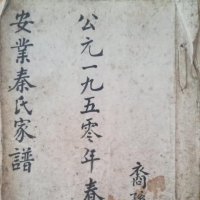 公元一九五零年春
安業秦氏家譜
裔孫